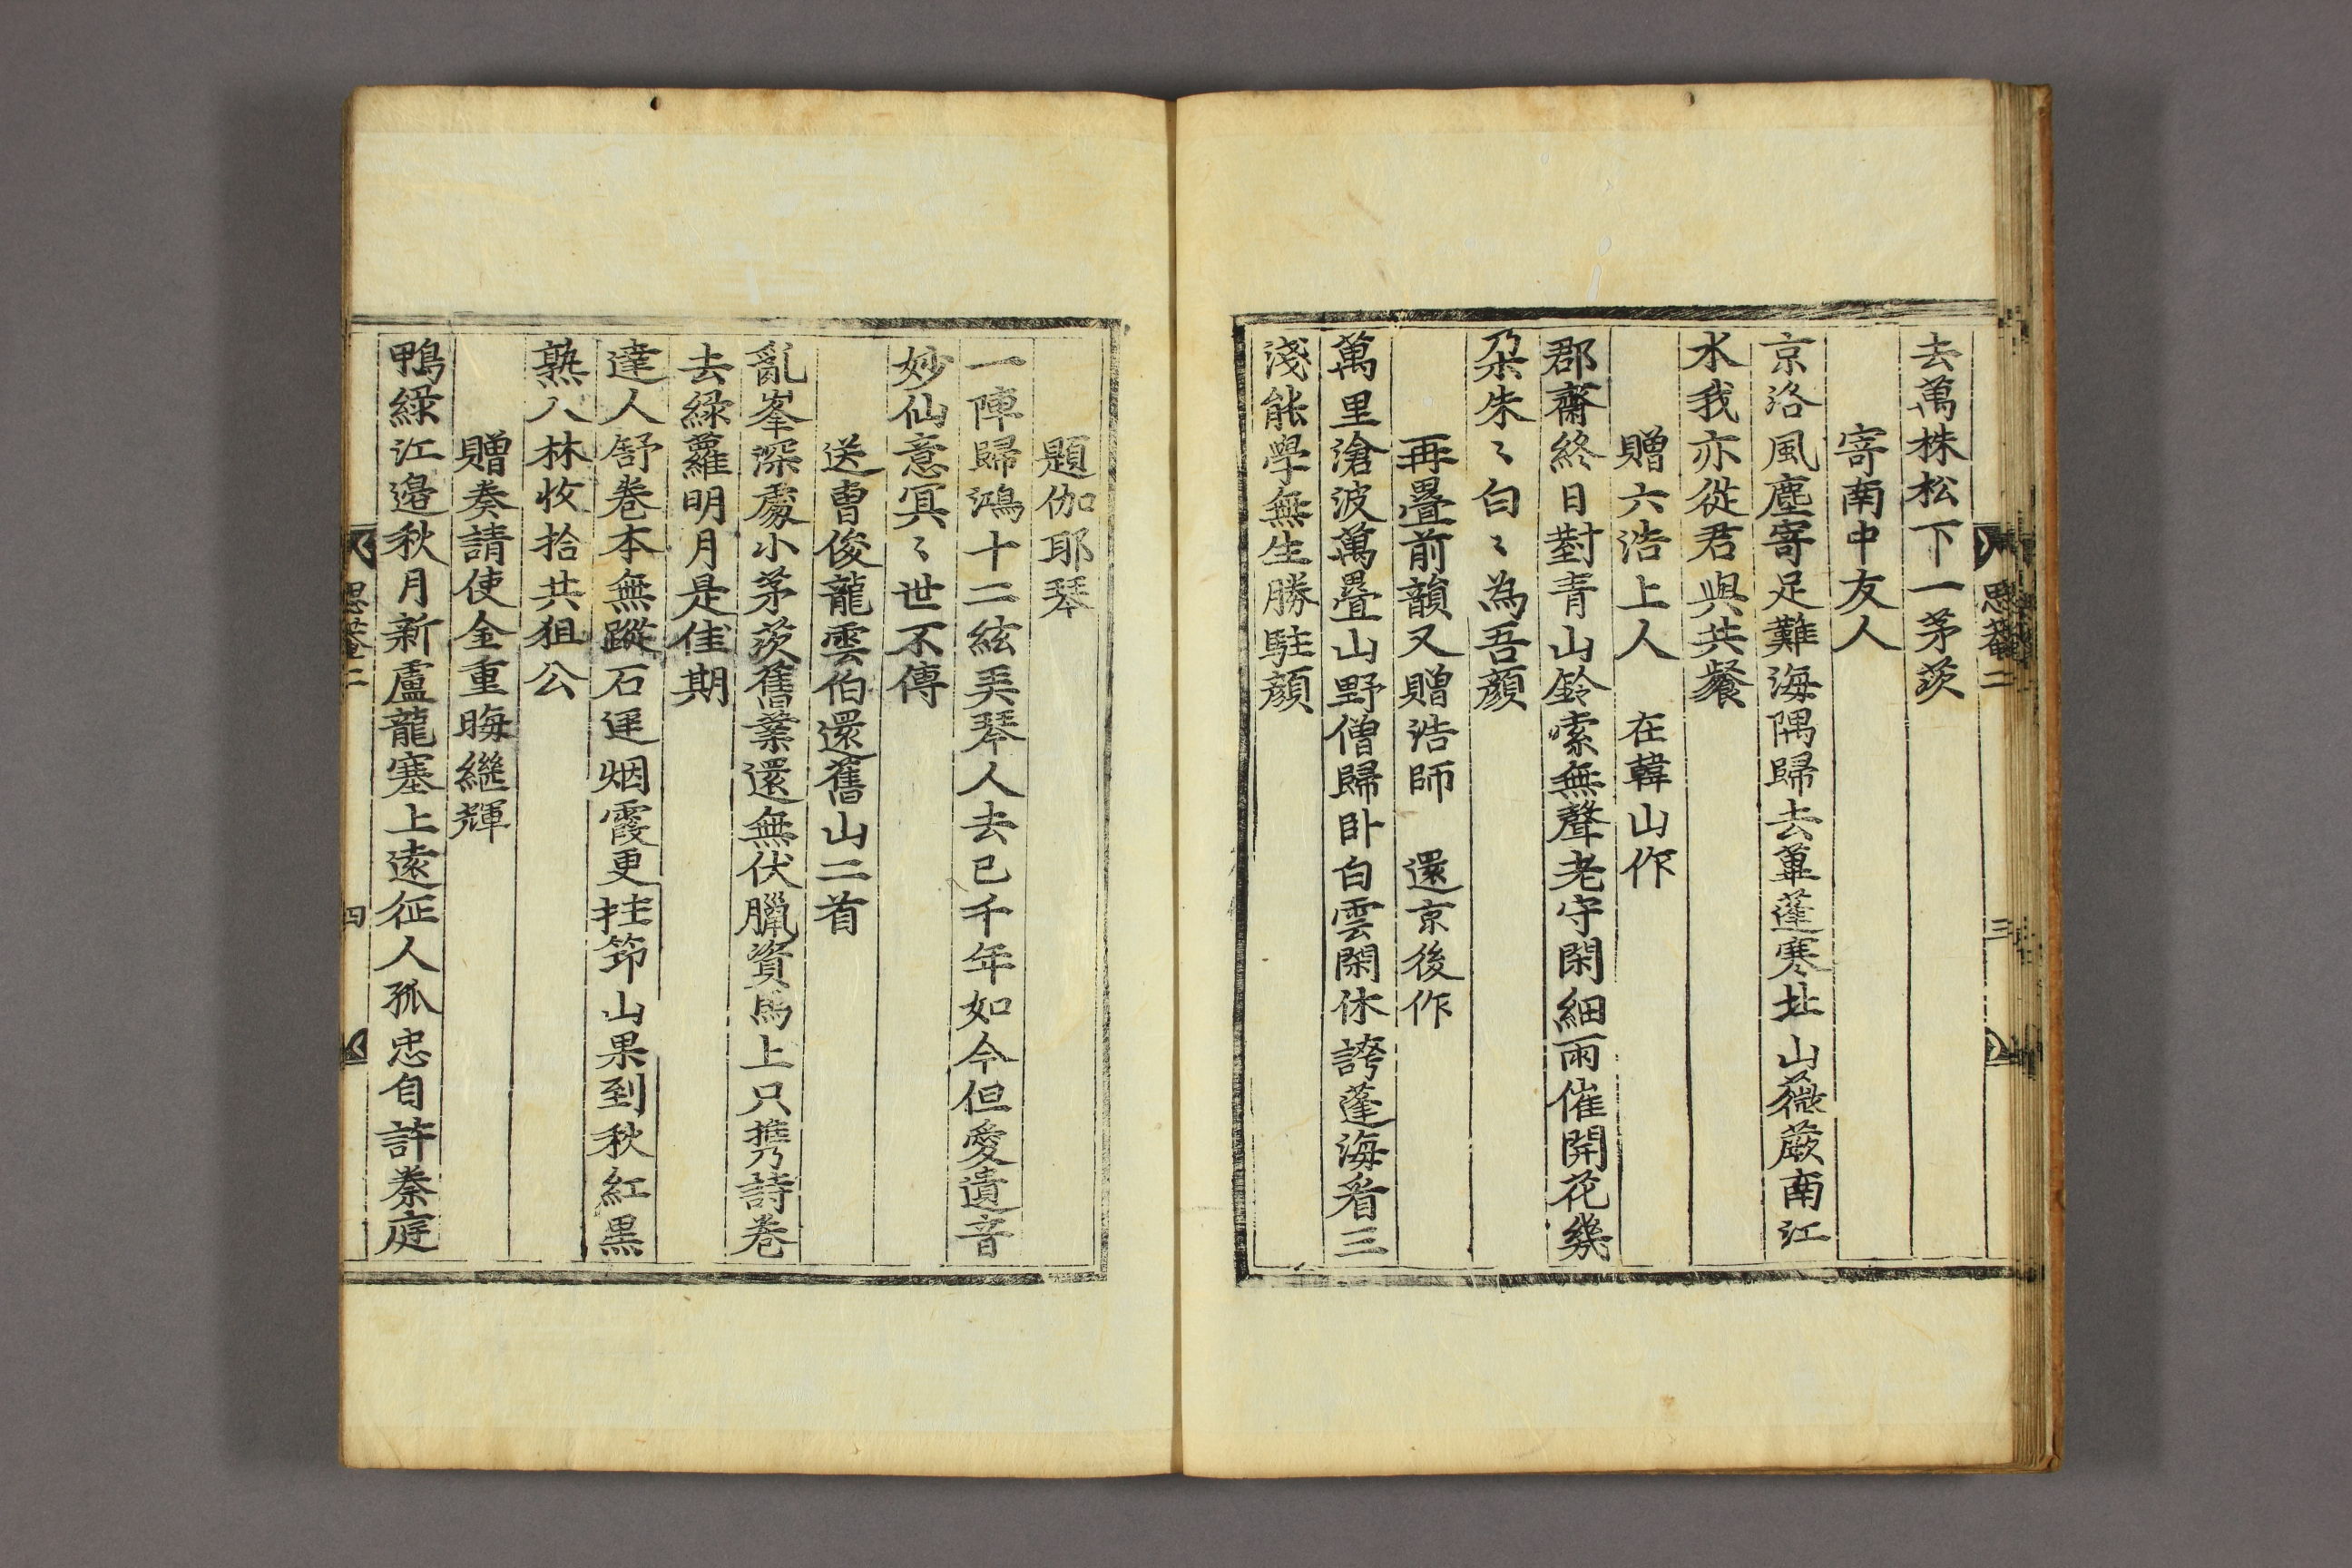 思菴二
三
去萬株松下一茅茨
寄南中友人
京洛風塵寄足難海隅歸去蓽蓬寒北山薇蕨南江
水我亦從君與共餐
贈六浩上人　在韓山作
郡齋終日對青山鈴索無聲老守閑細雨催開花幾
朶朱〻白〻為吾顔
再疊前韻又贈浩師　還京後作
萬里滄波萬疊山野僧歸卧白雲閑休誇蓬海看三
淺能學無生勝駐顔
題伽耶琴
一陣歸鴻十二絃奚琴人去已千年如今但愛遺音
妙仙意冥〻世不傳
送曺俊龍雲伯還舊山二首
亂峯深處小茅茨舊業還無伏臘資馬上只擕詩卷
去綠蘿明月是佳期
達人舒卷本無蹤石逕烟霞更拄筇山果到秋紅黒
熟八林收拾共狙公
贈奏請使金重晦繼輝
鴨綠江邊秋月新盧龍塞上遠征人孤忠自許秦庭
思菴二
四